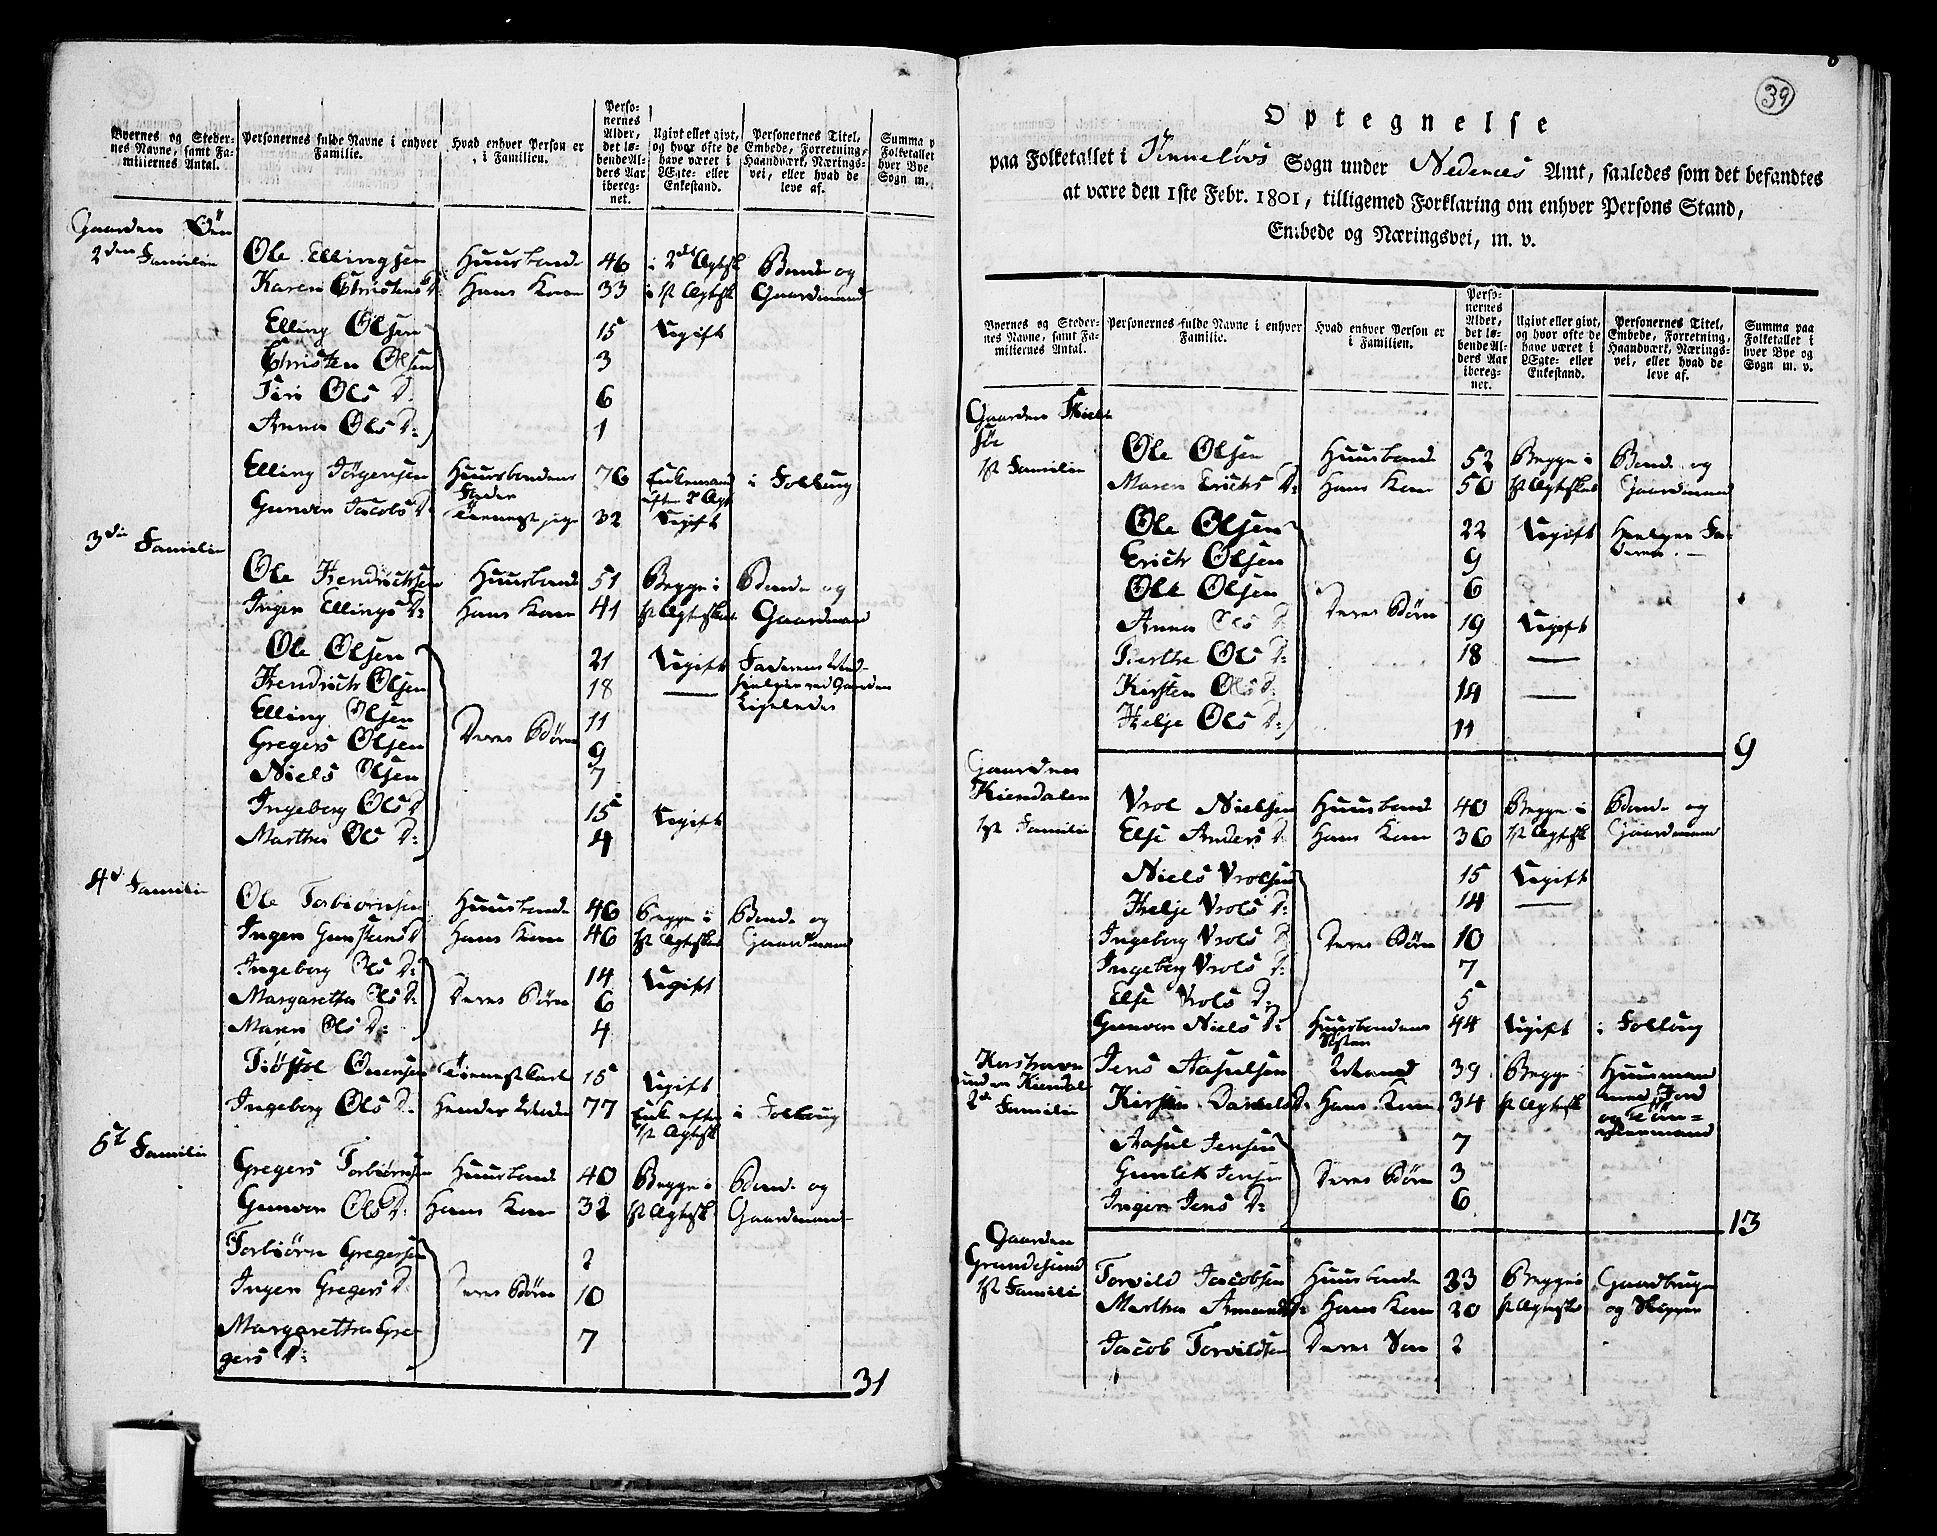 Byernes og Steder-
nes Navne, samt Fa-
miliernes Antal.
Personernes fulde Navne i enhver
Familie.
Hvad enhver Person er
i Familien.
Perso-
nernes
Alder,
det lø-
bende Al-
ders Aar
ibereg-
net.
Ugivt eller givt,
og hvor ofte de
have været i
Ægte- eller
Enkestand.
Personernes Titel,
Embede, Forretning,
Haandværk, Nærings-
vei, eller hvad de
leve af.
Summa
Folketallet
hver Bye
Sogn m.
Gaarden Öen
2den Familie
Ole Ellingsen Huusbonde 46 i 2det Ægtesk Bonde og
Karen Christens D: Hans Kone 33 i 1st Ægtesk Gaardmand
Elling Olsen 15 Ugift
Christen Olsen 3
Siri Ols D: 6
Anna Ols D: 1
Elling Jörgensen Huusbondens Fader 76 Enkemand efter 1st Ægt i Follaug
Gunvor Jacobs D: Tienestpige 32 Ugift
3die Familie
Ole Hendrichsen Huusbonde 51 Begge i Bonde og
Inger Ellings D: Hans Kone 41 1st Ægteskab Gaardmand
Ole Olsen 21 Ugift Faderens Med-
Hendrich Olsen 18 — hielper ved Gaarden
Elling Olsen 11 Ligeledes
Gregers Olsen Deres Börn 9
Niels Olsen 7
Ingeborg Ols D 15 Ugift
Martha Ols D: 4
4de Familie
Ole Torbiörnsen Huusbonde 46 Begge i Bonde og
Inger Gunsteens D Hans Kone 46 1st Ægteskab Gaardmand
Ingeborg Ols D: 14 Ugift
Margaretha Ols D: Deres Börn 6
Maren Ols D: 4
Tiöstol Ounsen Tienestkarl 15 Ugift
Ingeborg Ols D: Hendes Moder 77 Enke efter 1st Ægtesk i Follaug
5te Familie
Gregers Torbiörnsen Huusbonde 40 Begge i Bonde og
Gunvor Ols D: Hans Kone 32 1st Ægtesk Gaardmand
Torbiörn Gregersen 2
Inger Gregers D: Deres Börn 10
Margaretha Gre-
gers D: 7
31
39
Optegnelse
paa Folketallet i Sogn under Nedenes Amt, saaledes som det befandtes
at være den 1ste Febr. 1801, tilligemed Forklaring om enhver Persons Stand,
Embede og Næringsvei, m. v.
Byernes og Steder-
nes Navne, samt Fa-
miliernes Antal.
Personernes fulde Navne i enhver
Familie.
Hvad enhver Person er
i Familien.
Perso-
nernes
Alder,
det lø-
bende Al-
ders Aar
ibereg-
net.
Ugivt eller givt,
og hvor ofte de
have været i
Ægte- eller
Enkestand.
Personernes Titel,
Embede, Forretning,
Haandværk, Nærings-
vei, eller hvad de
leve af.
Summa paa
Folketallet i
hver Bye og
Sogn m. v.
Gaarden
1st Familie
Ole Olsen Huusbonde 52 Begge i Bonde og
Maren Erichs D: Hans Kone 50 1st Ægteskab Gaardmand
Ole Olsen 22 Ugift Hielper Fa-
deren
Erich Olsen 9
Ole Olsen 6
Anna Ols D Deres Börn 19 Ugift
Berthe Ols D: 18 —
Kirsten Ols D: 14 —
Helje Ols D: 11
9
Gaarden
Kiendalen
1st Familie
Vrol Nielsen Huusbonde 40 Begge i Bonde og
Else Anders D Hans Kone 36 1st Ægtesk Gaardmand
Niels Vrolsen 15 Ugift
Helje Vrols D: 14 —
Ingeborg Vrols D Deres Börn 10
Ingeborg Vrols D: 7
Else Vrols D: 5
Gunvor Niels D: Huusbondens Söster 44 Ugift i Follaug
under Kiendal
2d Familie
Jens Aasulsen Mand 39 Begge Huusmand
Kirsten Daniels D: Hans Kone 34 1st Ægtesk med Jord
Aasul Jensen 7
Gunlek Jensen Deres Börn 3
Inger Jens D: 6
13
Gaarden
Grundesund
1st Familie
Torvild Jacobsen Huusbonde 33 Begge i Gaardbruger
Martha Amunds D: Hans Kone 20 1st Ægteskab og Skipper
Jacob Torvildsen Deres Sön 2